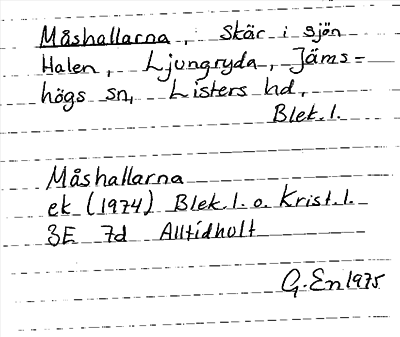 Måshallarna, Skär i sjön
Halen, Ljungryda, Jäms-
högs sn, Listers hd,
Blek. l.
Måshallarna
ek (1974) Blek. l. o. Krist. l.
3E 7d Alltidholt
G. En 1975